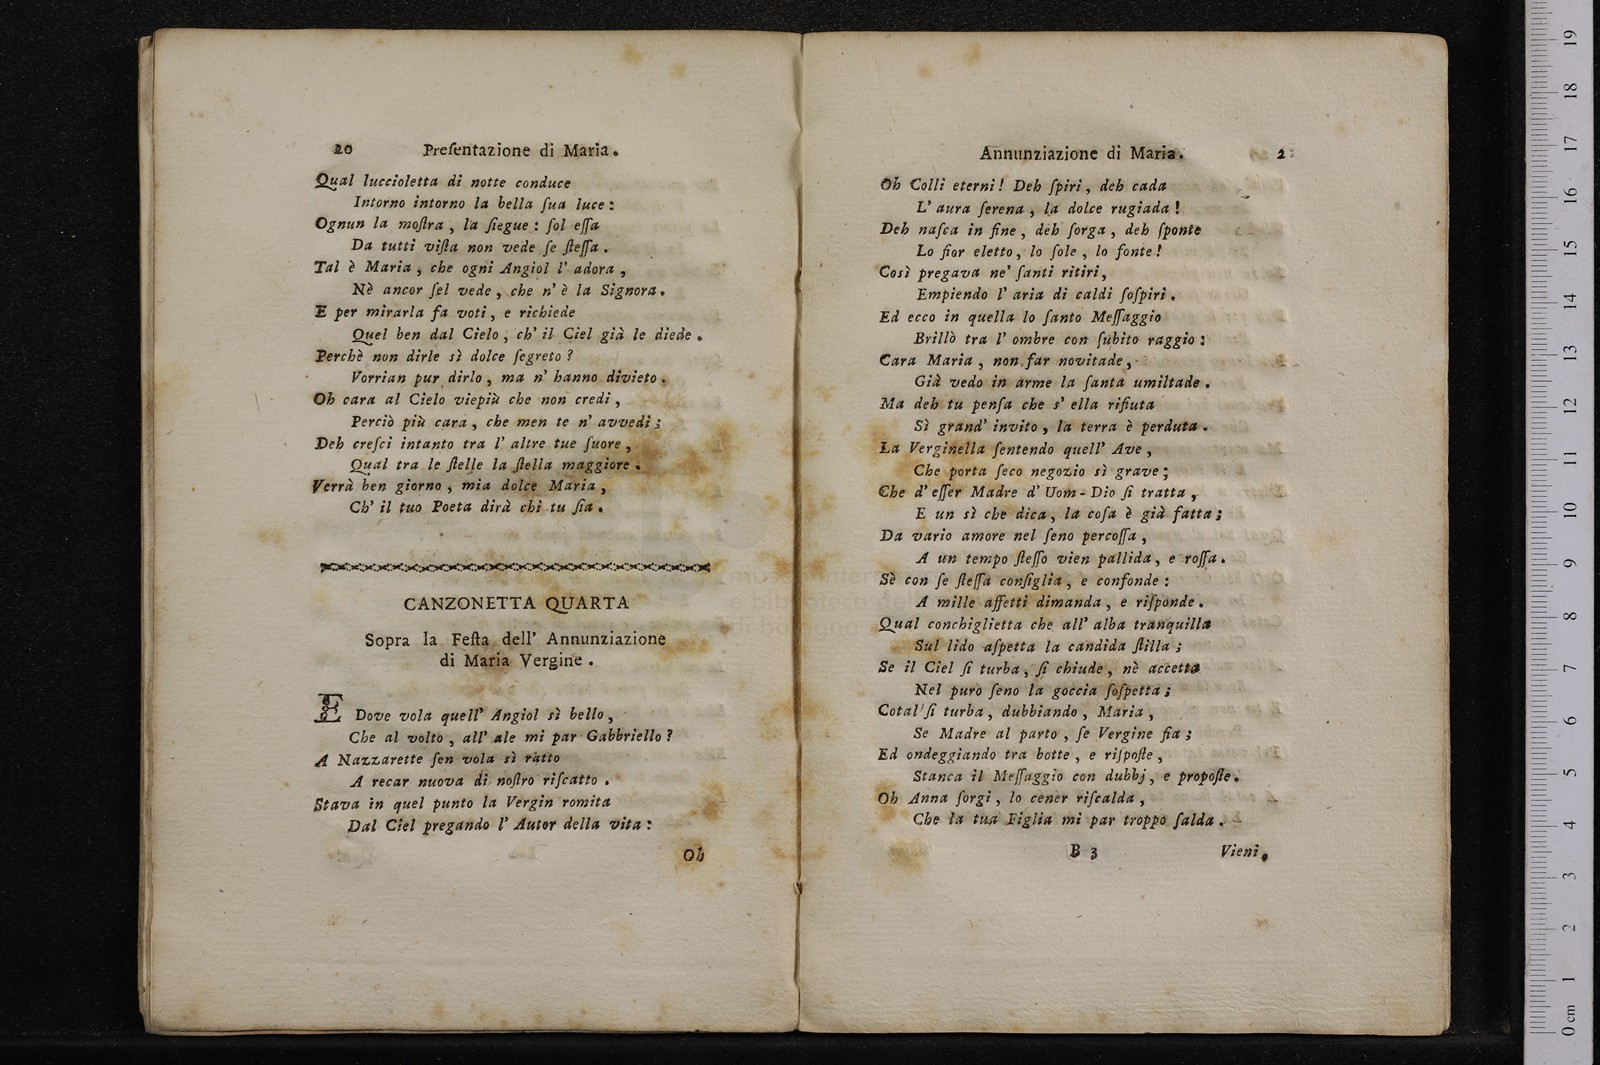 20 Preſentazione di Maria.
Qual luccioletta di notte conduce
Intorno intorno la bella ſua luce:
Ognun la moſtra, la ſiegue: ſol eſſa
Da tutti viſta non vede ſe ſteſſa.
Tal è Maria, che ogni Angiol l' adora,
Nè ancor ſel vede, che n' è la Signora.
E per mirarla fa voti, e richiede
Quel ben dal Cielo, ch' il Ciel già le diede.
Perchè non dirle sì dolce ſegreto?
Vorrian pur dirlo, ma n' hanno divieto.
Oh cara al Cielo viepiù che non credi,
Perciò più cara, che men te n' avvedi;
Deh creſci intanto tra l' altre tue ſuore,
Qual tra le ſtelle la ſtella maggiore.
Verrà ben giorno, mia dolce Maria,
Ch' il tuo Poeta dirà chi tu ſia.
CANZONETTA QUARTA
Sopra la Feſta dell' Annunziazione
di Maria Vergine.
E Dove vola quell' Angiol sì bello,
Che al volto, all' ale mi par Gabbriello?
A Nazzarette ſen vola sì ratto
A recar nuova di noſtro riſcatto.
Stava in quel punto la Vergin romita
Dal Ciel pregando l' Autor della vita:
Oh
Annunziazione di Maria. 2
Oh Colli eterni! Deh ſpiri, deh cada
L' aura ſerena, la dolce rugiada!
Deh naſca in fine, deh ſorga, deh ſponte
Lo fior eletto, lo ſole, lo fonte!
Così pregava ne' ſanti ritiri,
Empiendo l' aria di caldi ſoſpiri.
Ed ecco in quella lo ſanto Meſſaggio
Brillò tra l' ombre con ſubito raggio:
Cara Maria, non far novitade,
Già vedo in arme la ſanta umiltade.
Ma deh tu penſa che s' ella rifiuta
Sì grand' invito, la terra è perduta.
La Verginella ſentendo quell' Ave,
Che porta ſeco negozio sì grave;
Che d' eſſer Madre d' Uom-Dio ſi tratta,
E un sì che dica, la coſa è già fatta;
Da vario amore nel ſeno percoſſa,
A un tempo ſteſſo vien pallida, e roſſa.
Sè con ſe ſteſſa configlia, e confonde:
A mille affetti dimanda, e riſponde.
Qual conchiglietta che all' alba tranquilla
Sul lido aſpetta la candida ſtilla;
Se il Ciel ſi turba, ſi chiude, nè accetta
Nel puro ſeno la goccia ſoſpetta;
Cotal ſi turba, dubbiando, Maria,
Se Madre al parto, ſe Vergine fia;
Ed ondeggiando tra botte, e riſpoſte,
Stanca il Meſſaggio con dubbj, e propoſte.
Oh Anna ſorgi, lo cener riſcalda,
Che la tua Figlia mi par troppo ſalda.
B 3 Vieni,